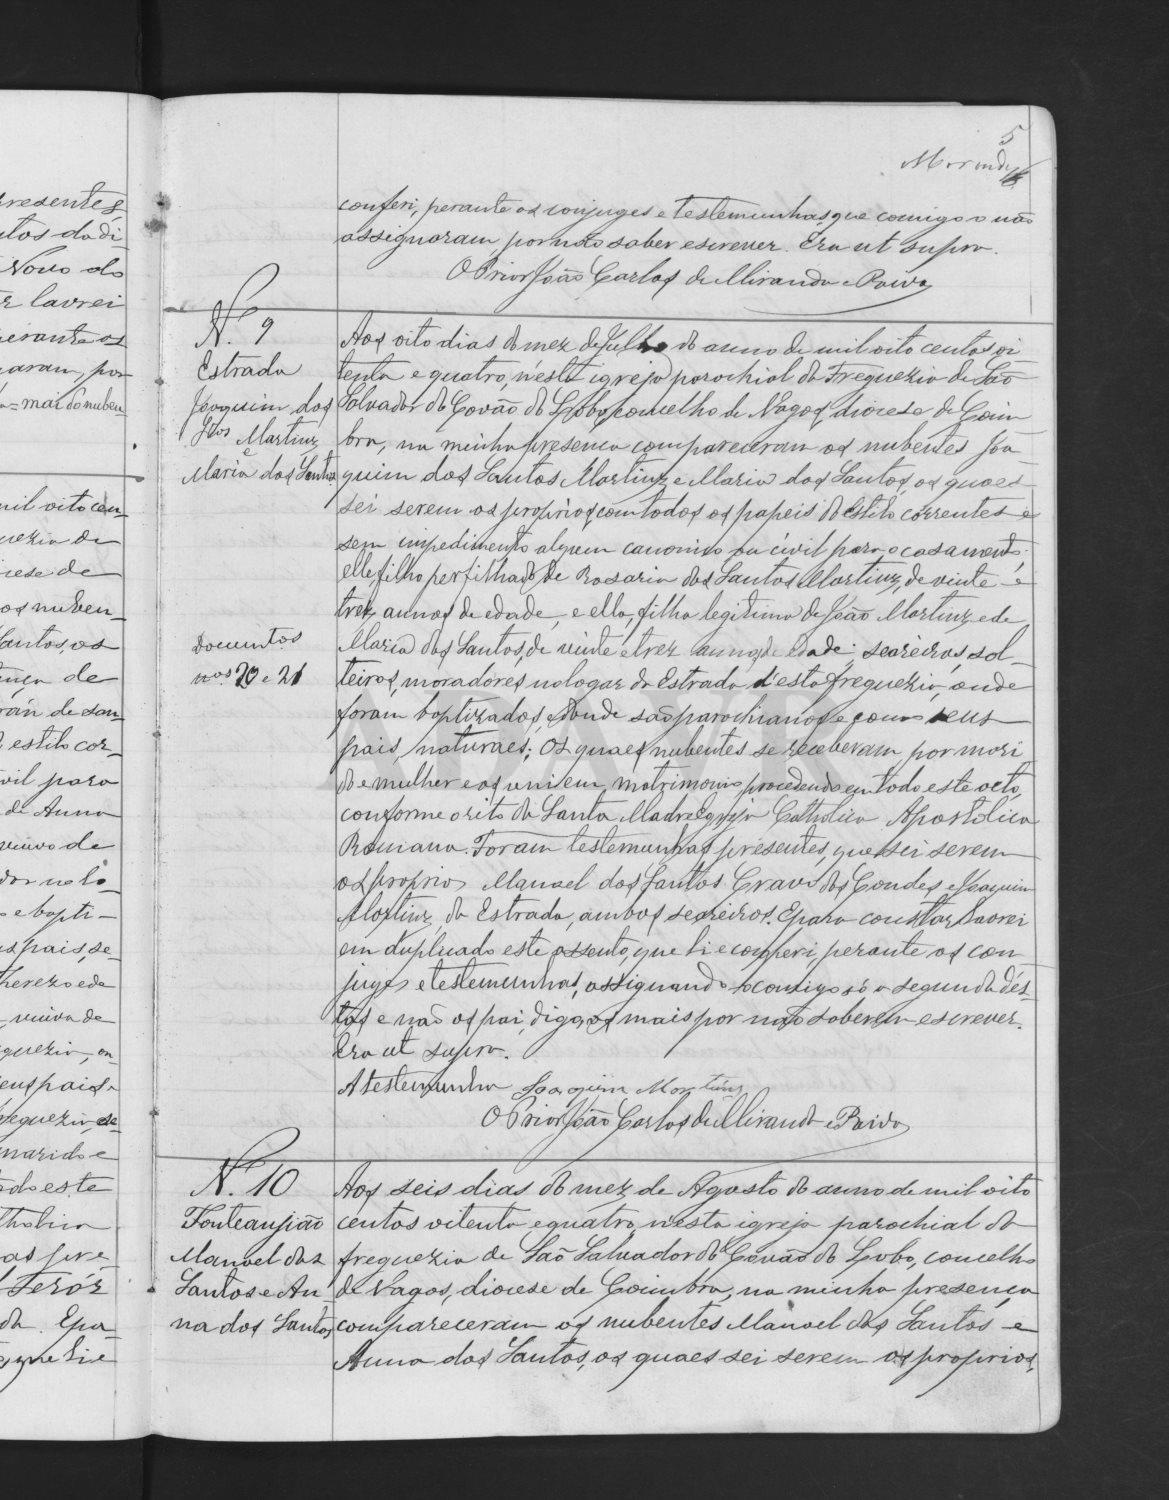 5
conferi, perante os conjuges e testemunhas, que comigo o não
assignaram por não saber escrever. Era ut supra.
O Prior João Carlos de Miranda e Paiva
N.º 9
Estrada
Joaquim dos
Stos Martins
e
Maria dos Santos
Documentos
nos 20 e 21
Aos oito dias do mez de Julho do anno de mil oito centos oi-
tenta e quatro, n'esta igreja parochial da Freguezia de São
Salvador do Covão do Lobo, concelho de Vagos, diocese de Coim
bra, na minha presença compareceram os nubentes Joa-
quim dos Santos Martins e Maria dos Santos, os quaes
sei serem os proprios, com todos os papeis do estilo correntes e
sem impedimento algum canonico ou civil para o casamento;
elle, filho perfilhado de Rosaria dos Santos Martins, de vinte e
trez annos de edade, e ella, filha legitima de João Martins e de
Maria dos Santos, de vinte e trez annos de edade; seareiros, sol-
teiros, moradores no logar da Estrada d'esta freguezia, onde
foram baptizados, e donde são parochianos e como seus
pais, naturaes; Os quaes nubentes se receberam por mari
do e mulher e os uni em matrimonio procedendo em todo este acto,
conforme o rito da Santa Madre Egreja Catholica Apostolica
Romana. Foram testemunhas presentes, que sei serem
os proprios Manoel dos Santos Cravo dos Condes e Joaquim
Martins, da Estrada, ambos seareiros. E para constar lavrei
em duplicado este assento, que li e conferi, perante os con-
juges e testemunhas, assignando comigo só a segunda dés-
tas e não os pai, digo, os mais por não saberem escrever.
Era ut supra.
A testemunha Joaquim Martins
O Prior João Carlos de Miranda e Paiva
N.º 10
Fonteangião
Manoel dos
Santos e An-
na dos Santos
Aos seis dias do mez de Agosto do anno de mil oito
centos oitenta e quatro, n'esta igreja parochial da
freguezia de São Salvador do Covão do Lobo, concelho
de Vagos, diocese de Coimbra, na minha presença
compareceram os nubentes Manoel dos Santos e
Anna dos Santos, os quaes sei serem os proprios,